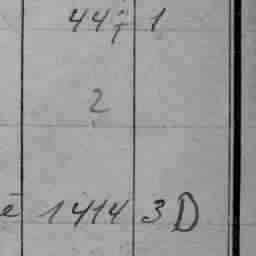 447 1
2
e 1414 3 D